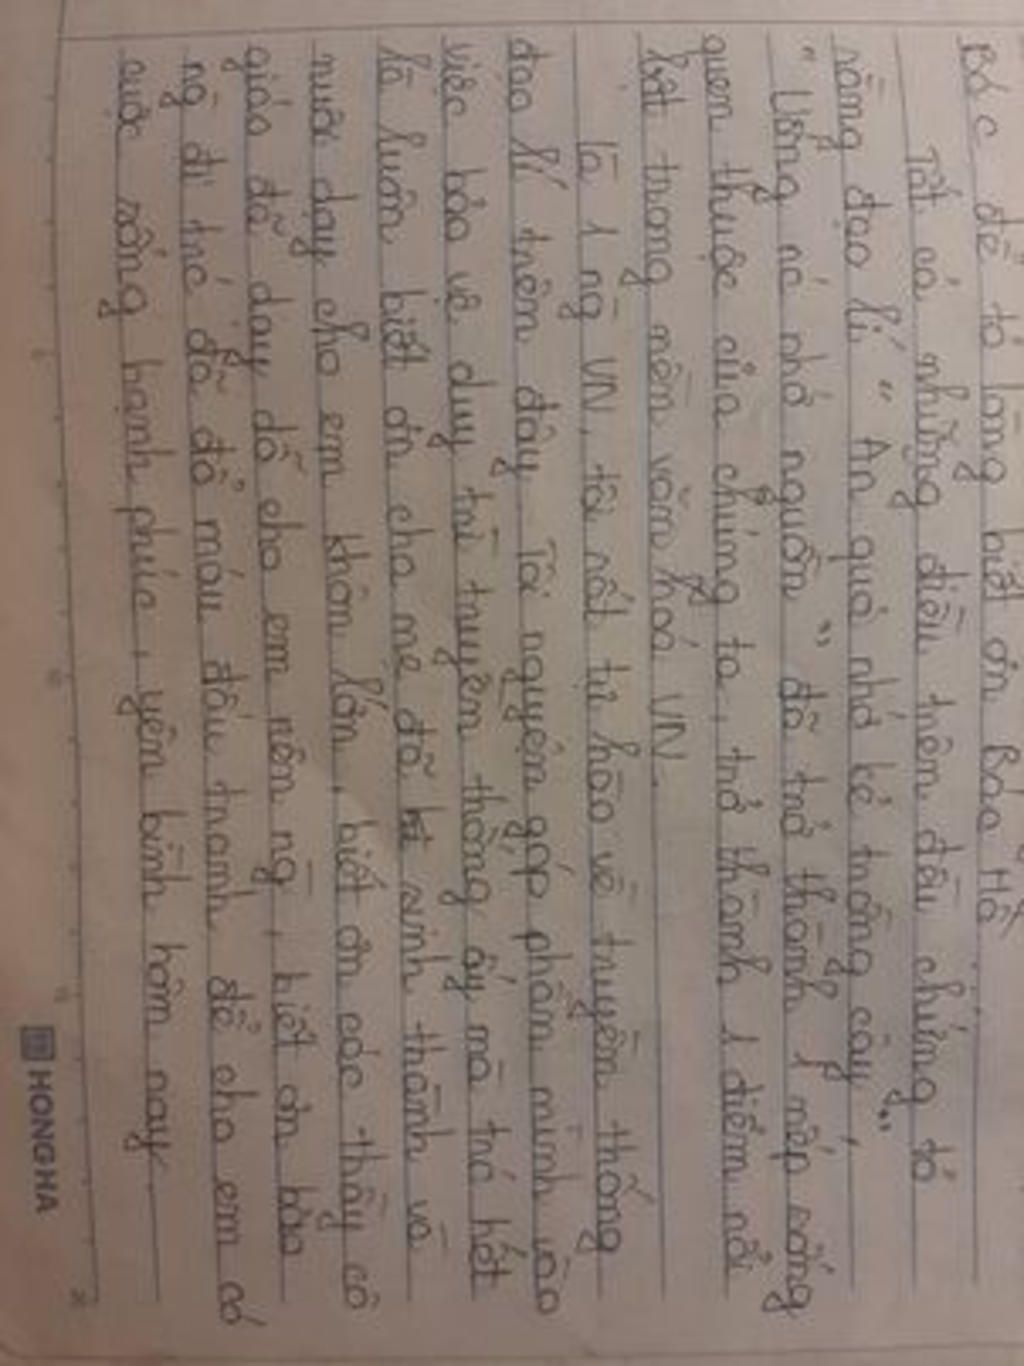 Bác để tỏ lòng biết ơn Bác Hồ
Tất cả những điều trên đều chứng tỏ
rằng đạo lí " Ăn quả nhớ kẻ trồng cây, "
" Uống nc nhớ nguồn " đã trở thành 1 nếp sống
quen thuộc của chúng ta, trở thành 1 điểm nổi
bật trong nền văn hoá VN.
Là 1 ng VN, tôi rất tự hào về truyền thống
đạo lí trên đây. Tôi nguyện góp phần mình vào
việc bảo vệ duy trì truyền thống ấy mà trc hết
là luôn biết ơn cha mẹ đã sinh thành và
nuôi dạy cho em khôn lớn, biết ơn các thầy cô
giáo đã dạy dỗ cho em nên ng, biết ơn bao
ng đi trc đã đổ máu đấu tranh để cho em có
cuộc sống hạnh phúc, yên bình hôm nay
HONGHA